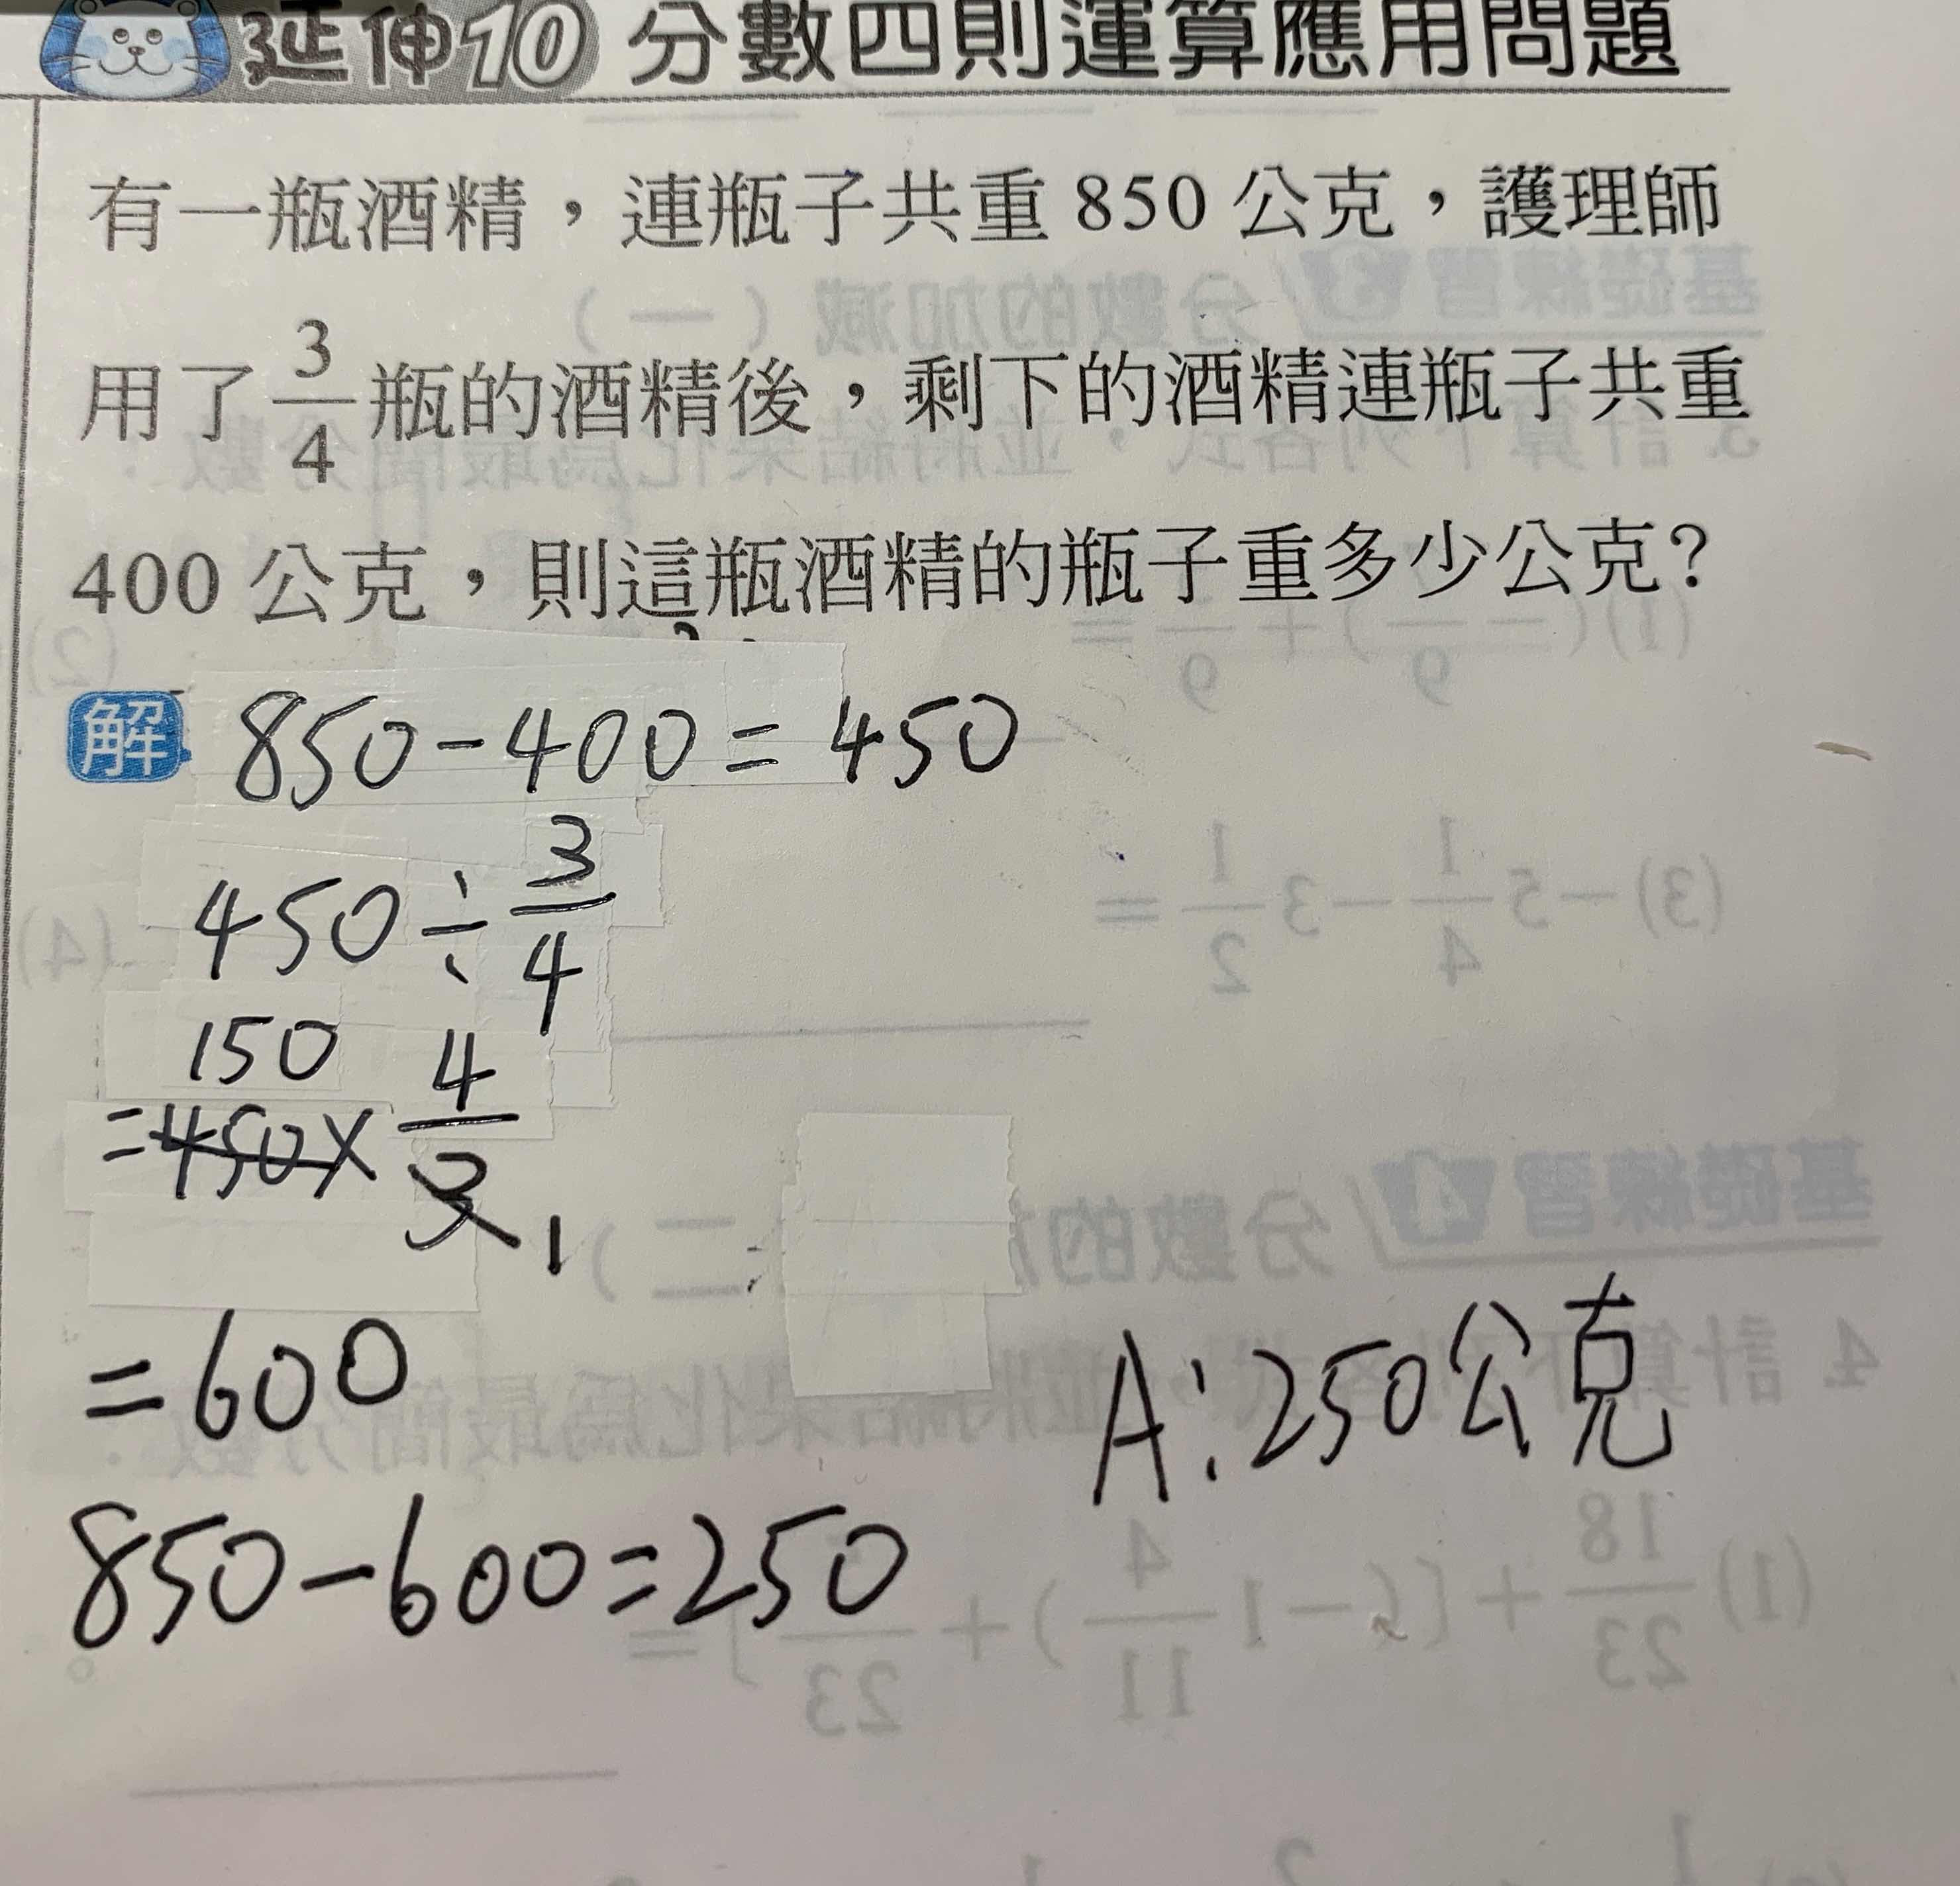 延伸10 分數四則運算應用問題
有一瓶酒精，連瓶子共重 850 公克，護理師
用了 3/4 瓶的酒精後，剩下的酒精連瓶子共重
400 公克，則這瓶酒精的瓶子重多少公克？
解 850-400=450
450÷3/4
150
=450×4/3 1
=600
A:250公克
850-600=250